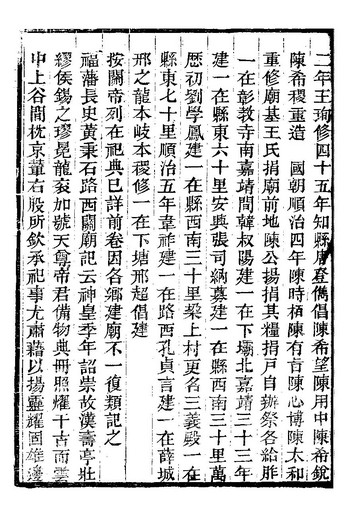 二年王瑜修四十五年知縣唐登儁倡陳希望陳用中陳希銳
陳希稷重造　國朝順治四年陳時栢陳有言陳心博陳太和
重修廟基王氏捐廟前地陳公揚捐其糧捐戸自辦祭各給胙
一在彰教寺南嘉靖間韓叔陽建一在下壩北嘉靖三十三年
建一在縣東六十里安典張司納募建一在縣西南三十里萬
歴初劉學鳳建一在縣西南三十里梁上村更名三義殿一在
縣東七十里順治五年韋祚建一在路西孔貞言建一在薛城
邢之龍本岐本稷修一在下塘邢超倡建
按關帝列在祀典已詳前卷因各鄉建廟不一復類記之
福藩長史黃秉石路西關廟記云神皇季年詔崇故漢壽亭壯
繆侯錫之璆冕龍衮加號天尊帝君備物典冊照耀千古而雲
中上谷間枕京葷右股所欽承祀事尤肅藉以揚靈耀固雄邊